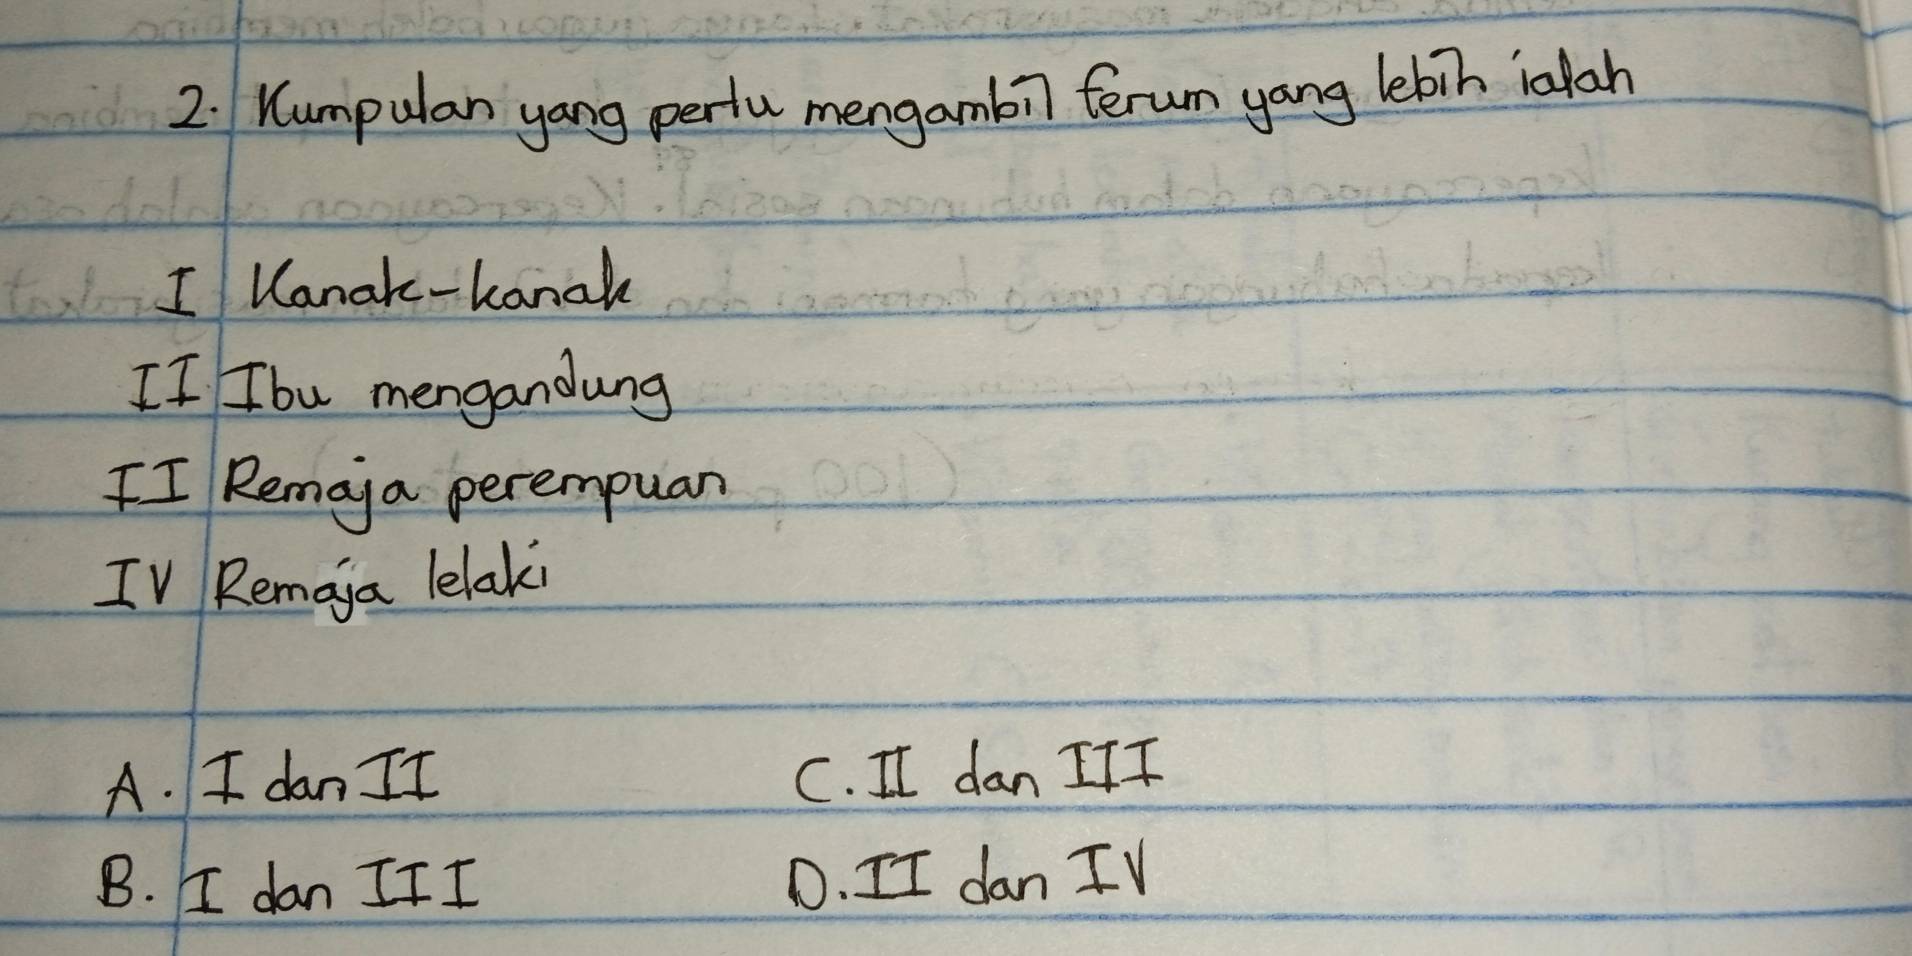 2. Kumpulan yang perlu mengambil ferum yang lebih ialah
I Kanak-kanak
II Ibu mengandung
II Remaja perempuan
IV Remaja lelaki
A. I dan II
C. II dan III
B. I dan III
D. II dan IV